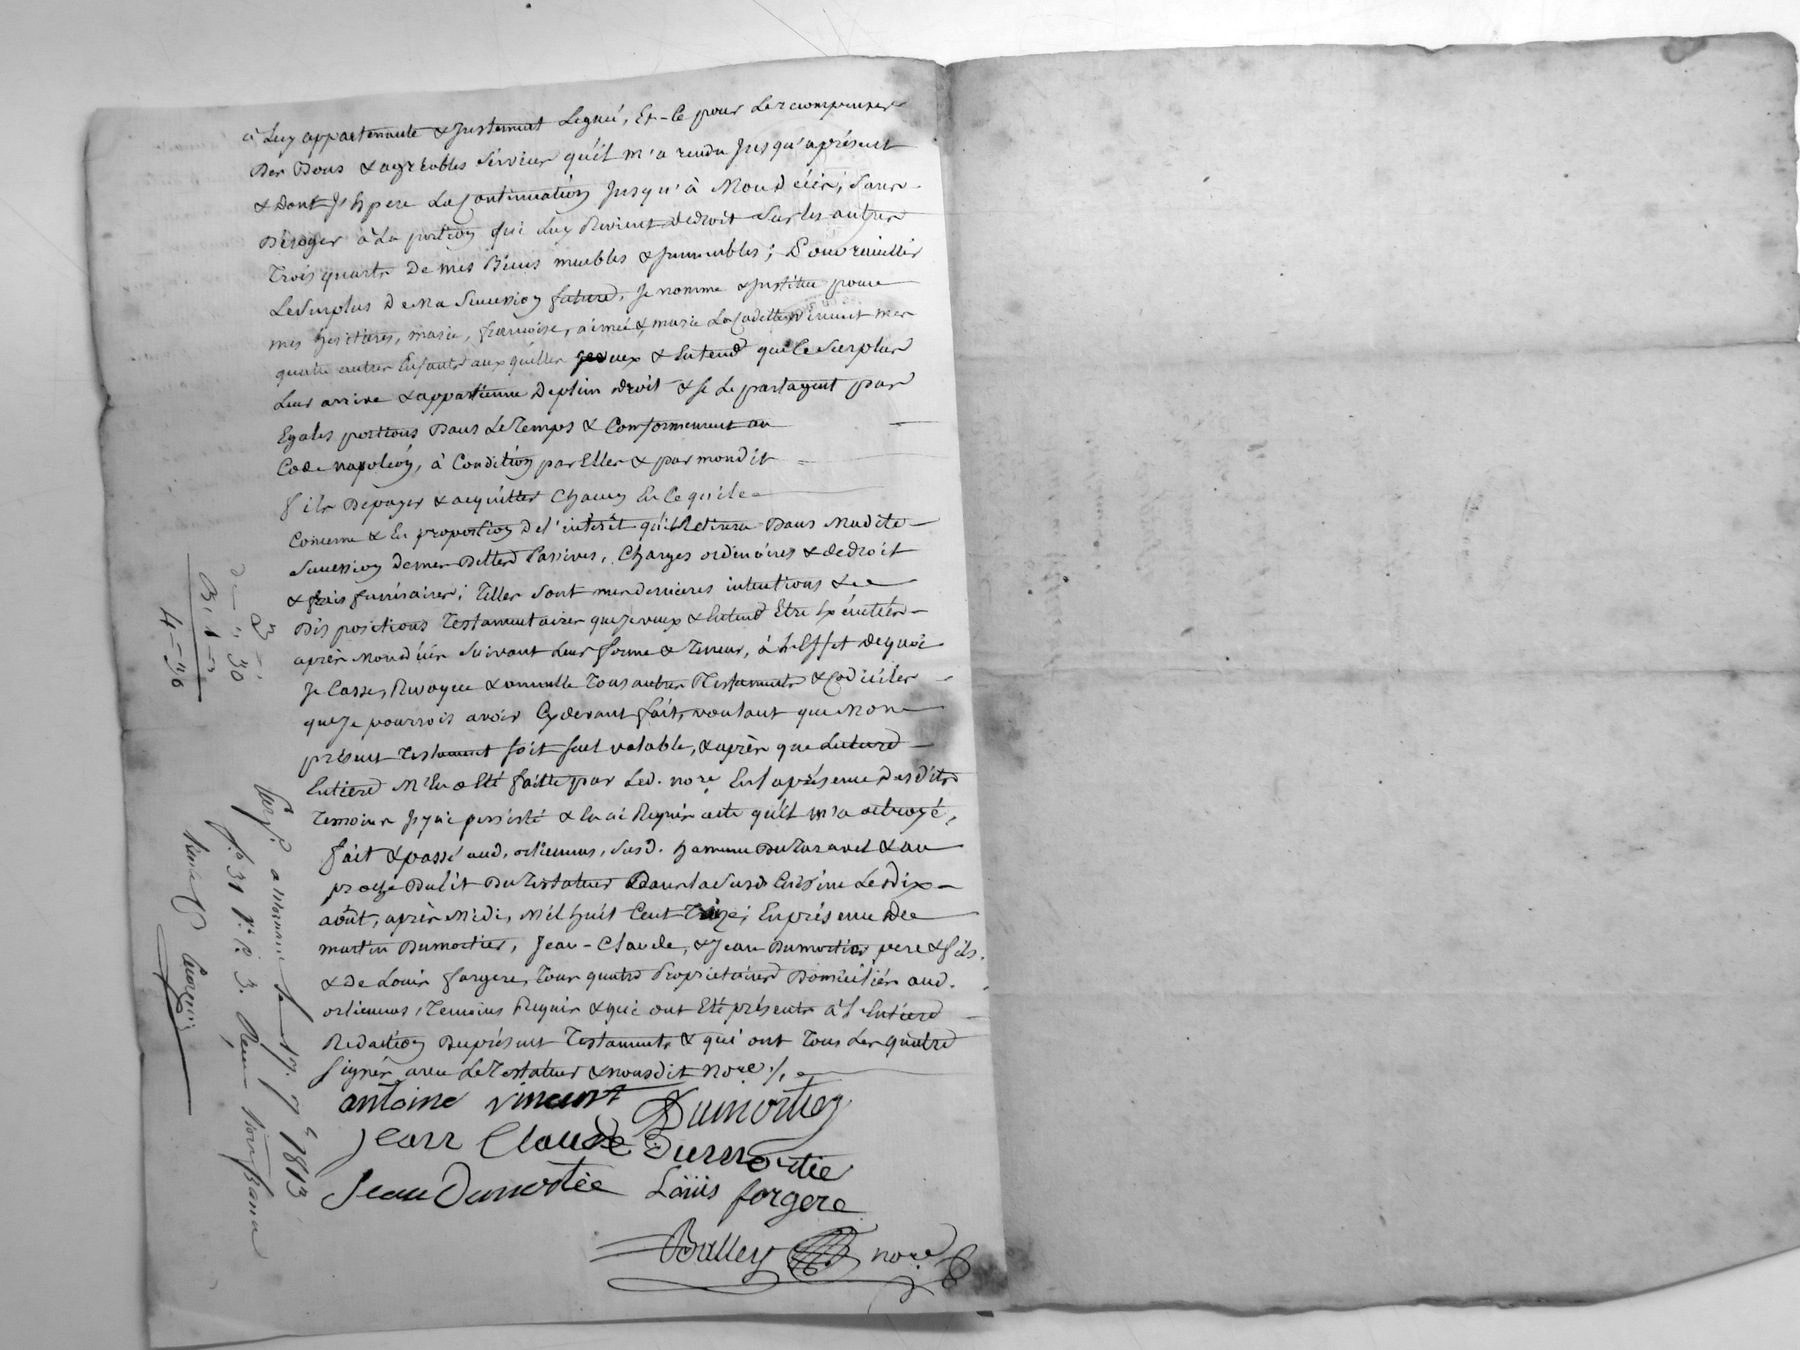 à Luy appartenante & Justement Legué, Et-Ce pour Le recompenser
Des Bons & agréables Services qu'il m'a rendu Jusqu'aprésent
& Dont J'Espere La Continuation Jusqu'à Mon Décès, Sans
Déroger à La portion qui Luy Revient dedroit Sur les autres
Trois quarts De mes Biens meubles & Immeubles; & pour recuillir
Le Surplus De Ma Succession future, Je nomme & Institue pour
mes heritieres, marie, françoise, aimée & marie La Cadette Vincent mes
quatre autres Enfants auxquelles Je veux & Entend que le Surplus
Leur arrive & appartienne De plein droit & se Le partagent par
Egales portions Dans Le Temps & Conformement au
Code napoléon, à Condition par Elles & par mondit
fils De payer & acquitter Chacun En Ce qui le
Concerne & En proportion De l'intérêt qu'il Retirera Dans Madite
Succession de mes Dettes Passives, Charges ordinaires & de droit
& frais funéraires; Telles Sont mes dernieres intentions &
Dispositions Testamentaires que Je veux & Entend Etre Exécutées
après Mon décès Suivant Leur forme & Teneur, à L'Effet de quoi
Je Casse, Revoque & annulle Tous autres Testaments & Codiciles
que Je pourrois avoir Cy devant fait, voulant que Mon
présent Testament soit seul valable, & après que Lecture
Entiere M'En a Eté faitte par Led. nore. En la présence Desdits
Temoins J'y ai persisté & En ai Requis acte qu'il m'a octroyé,
fait & passé aud. orliennas, Susd. hameau Du Taravel & au
proche Du Lit Du Testateur Dans La Susd. Cuisine Le dix
août, après Midi, Mil huit Cent Treize; En présence De
martin Dumortier, Jean-Claude, & Jean Dumortier pere & fils,
& De Louis fargere, Tous quatre Proprietaires Domiciliés aud.
orliennas, Temoins Requis & qui ont Eté présents à L'Entiere
Redaction Du présent Testament & qui ont Tous Les quatre
Signés avec Le Testateur & nousdit Nore ./.
antoine vincent Dumortier
Jean Claude Dumortie
Jean Dumortiée Loüis forgere
Balley nore
3 – 30
4 – 30
17. 7e 1813
fo. 31 Vo. C. 3.